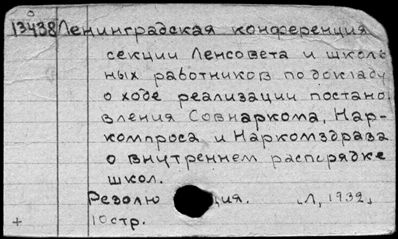 13438 Ленинградская конференция
секции Ленсовета и школь-
ных работников по докладу
о ходе реализации постано-
вления Совнаркома, Нар-
компроса и Наркомздрава
о внутреннем распорядке
школ.
Резолю ция. Л, 1932,
10 стр.
+